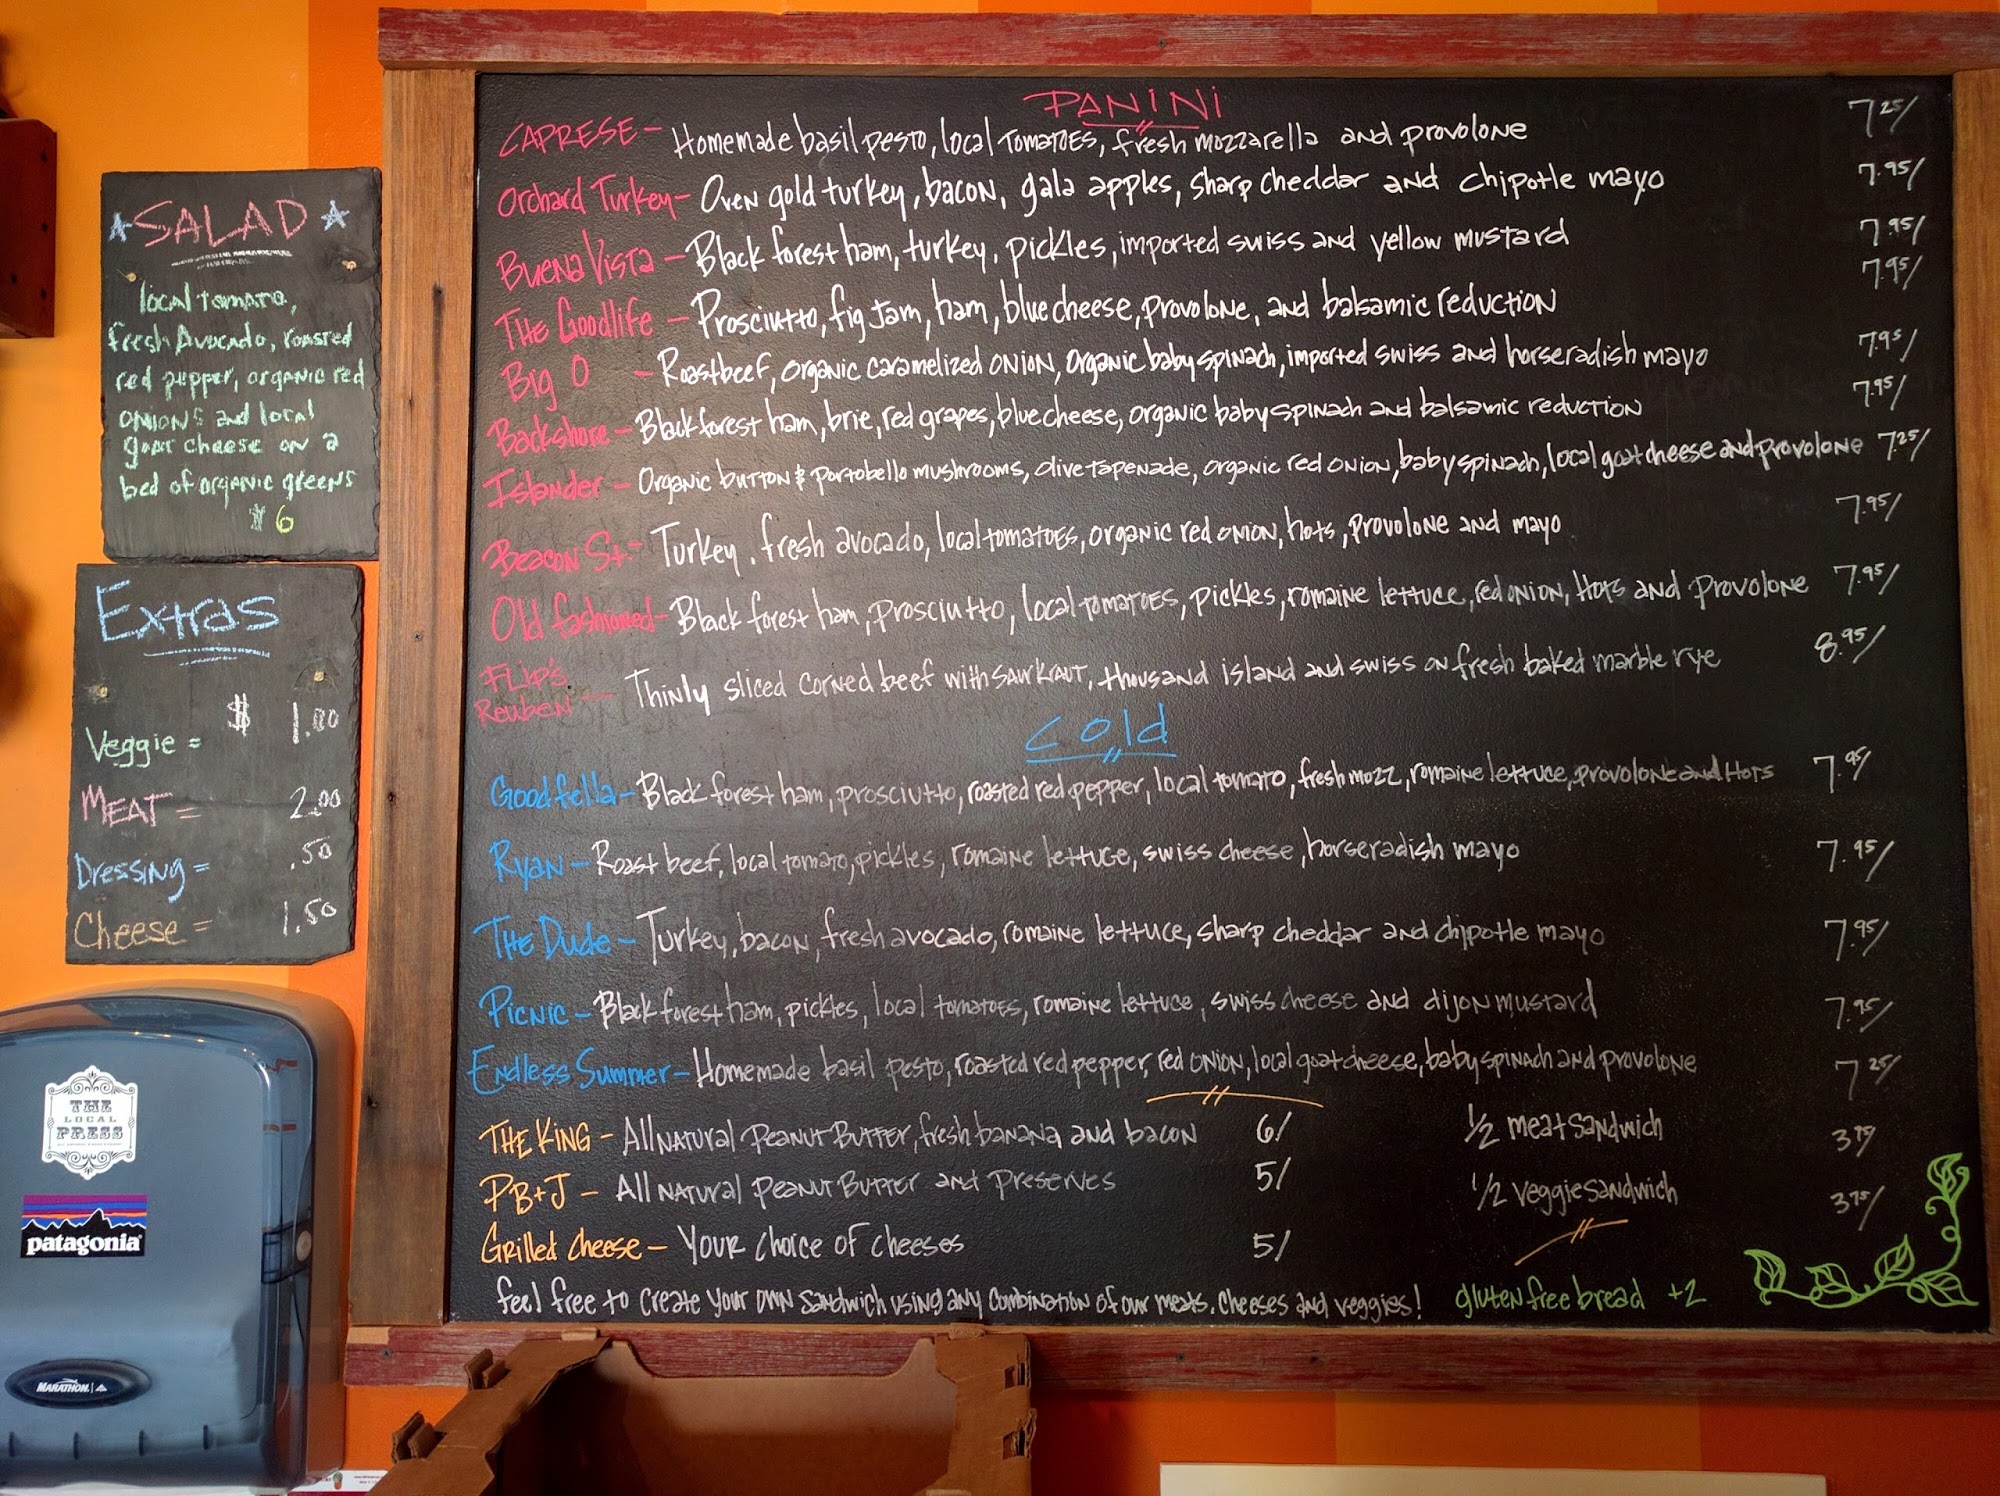 ☆ SALAD ☆
local tomato,
fresh Avocado, roasted
red pepper, organic red
onions and local
goat cheese on a
bed of organic greens
$6
Extras
Veggie = $ 1.00
MEAT = 2.00
Dressing = .50
Cheese = 1.50
PANINI
CAPRESE - Homemade basil pesto, local tomatoes, fresh mozzarella and provolone 7.25/
Orchard Turkey - Oven gold turkey, bacon, gala apples, sharp cheddar and chipotle mayo 7.95/
Buena Vista - Black forest ham, turkey, pickles, imported swiss and yellow mustard 7.95/
The Goodlife - Prosciutto, fig jam, ham, blue cheese, provolone, and balsamic reduction 7.95/
Big O - Roastbeef, organic caramelized onion, organic baby spinach, imported swiss and horseradish mayo 7.95/
Backshore - Black forest ham, brie, red grapes, blue cheese, organic baby spinach and balsamic reduction 7.95/
Islander - Organic button & portobello mushrooms, olive tapenade, organic red onion, baby spinach, local goat cheese and provolone 7.25/
Beacon St. - Turkey, fresh avocado, local tomatoes, organic red onion, hots, provolone and mayo 7.95/
Old fashioned - Black forest ham, prosciutto, local tomatoes, pickles, romaine lettuce, red onion, hots and provolone 7.95/
Flip's Reuben - Thinly sliced corned beef with sawkraut, thousand island and swiss on fresh baked marble rye 8.95/
Cold
Goodfella - Black forest ham, prosciutto, roasted red pepper, local tomato, fresh mozz, romaine lettuce, provolone and Hots 7.95/
Ryan - Roast beef, local tomato, pickles, romaine lettuce, swiss cheese, horseradish mayo 7.95/
The Dude - Turkey, bacon, fresh avocado, romaine lettuce, sharp cheddar and chipotle mayo 7.95/
Picnic - Black forest ham, pickles, local tomatoes, romaine lettuce, swiss cheese and dijon mustard 7.95/
Endless Summer - Homemade basil pesto, roasted red pepper, red onion, local goat cheese, baby spinach and provolone 7.25/
The King - All natural Peanut Butter, fresh banana and bacon 6/
PB+J - All natural peanut Butter and Preserves 5/
Grilled cheese - Your choice of cheeses 5/
1/2 meat sandwich 3.75/
1/2 veggie sandwich 3.75/
feel free to create your own sandwich using any combination of our meats, cheeses and veggies!
gluten free bread +2
THE
LOCAL
PRESS
patagonia
MARATHON